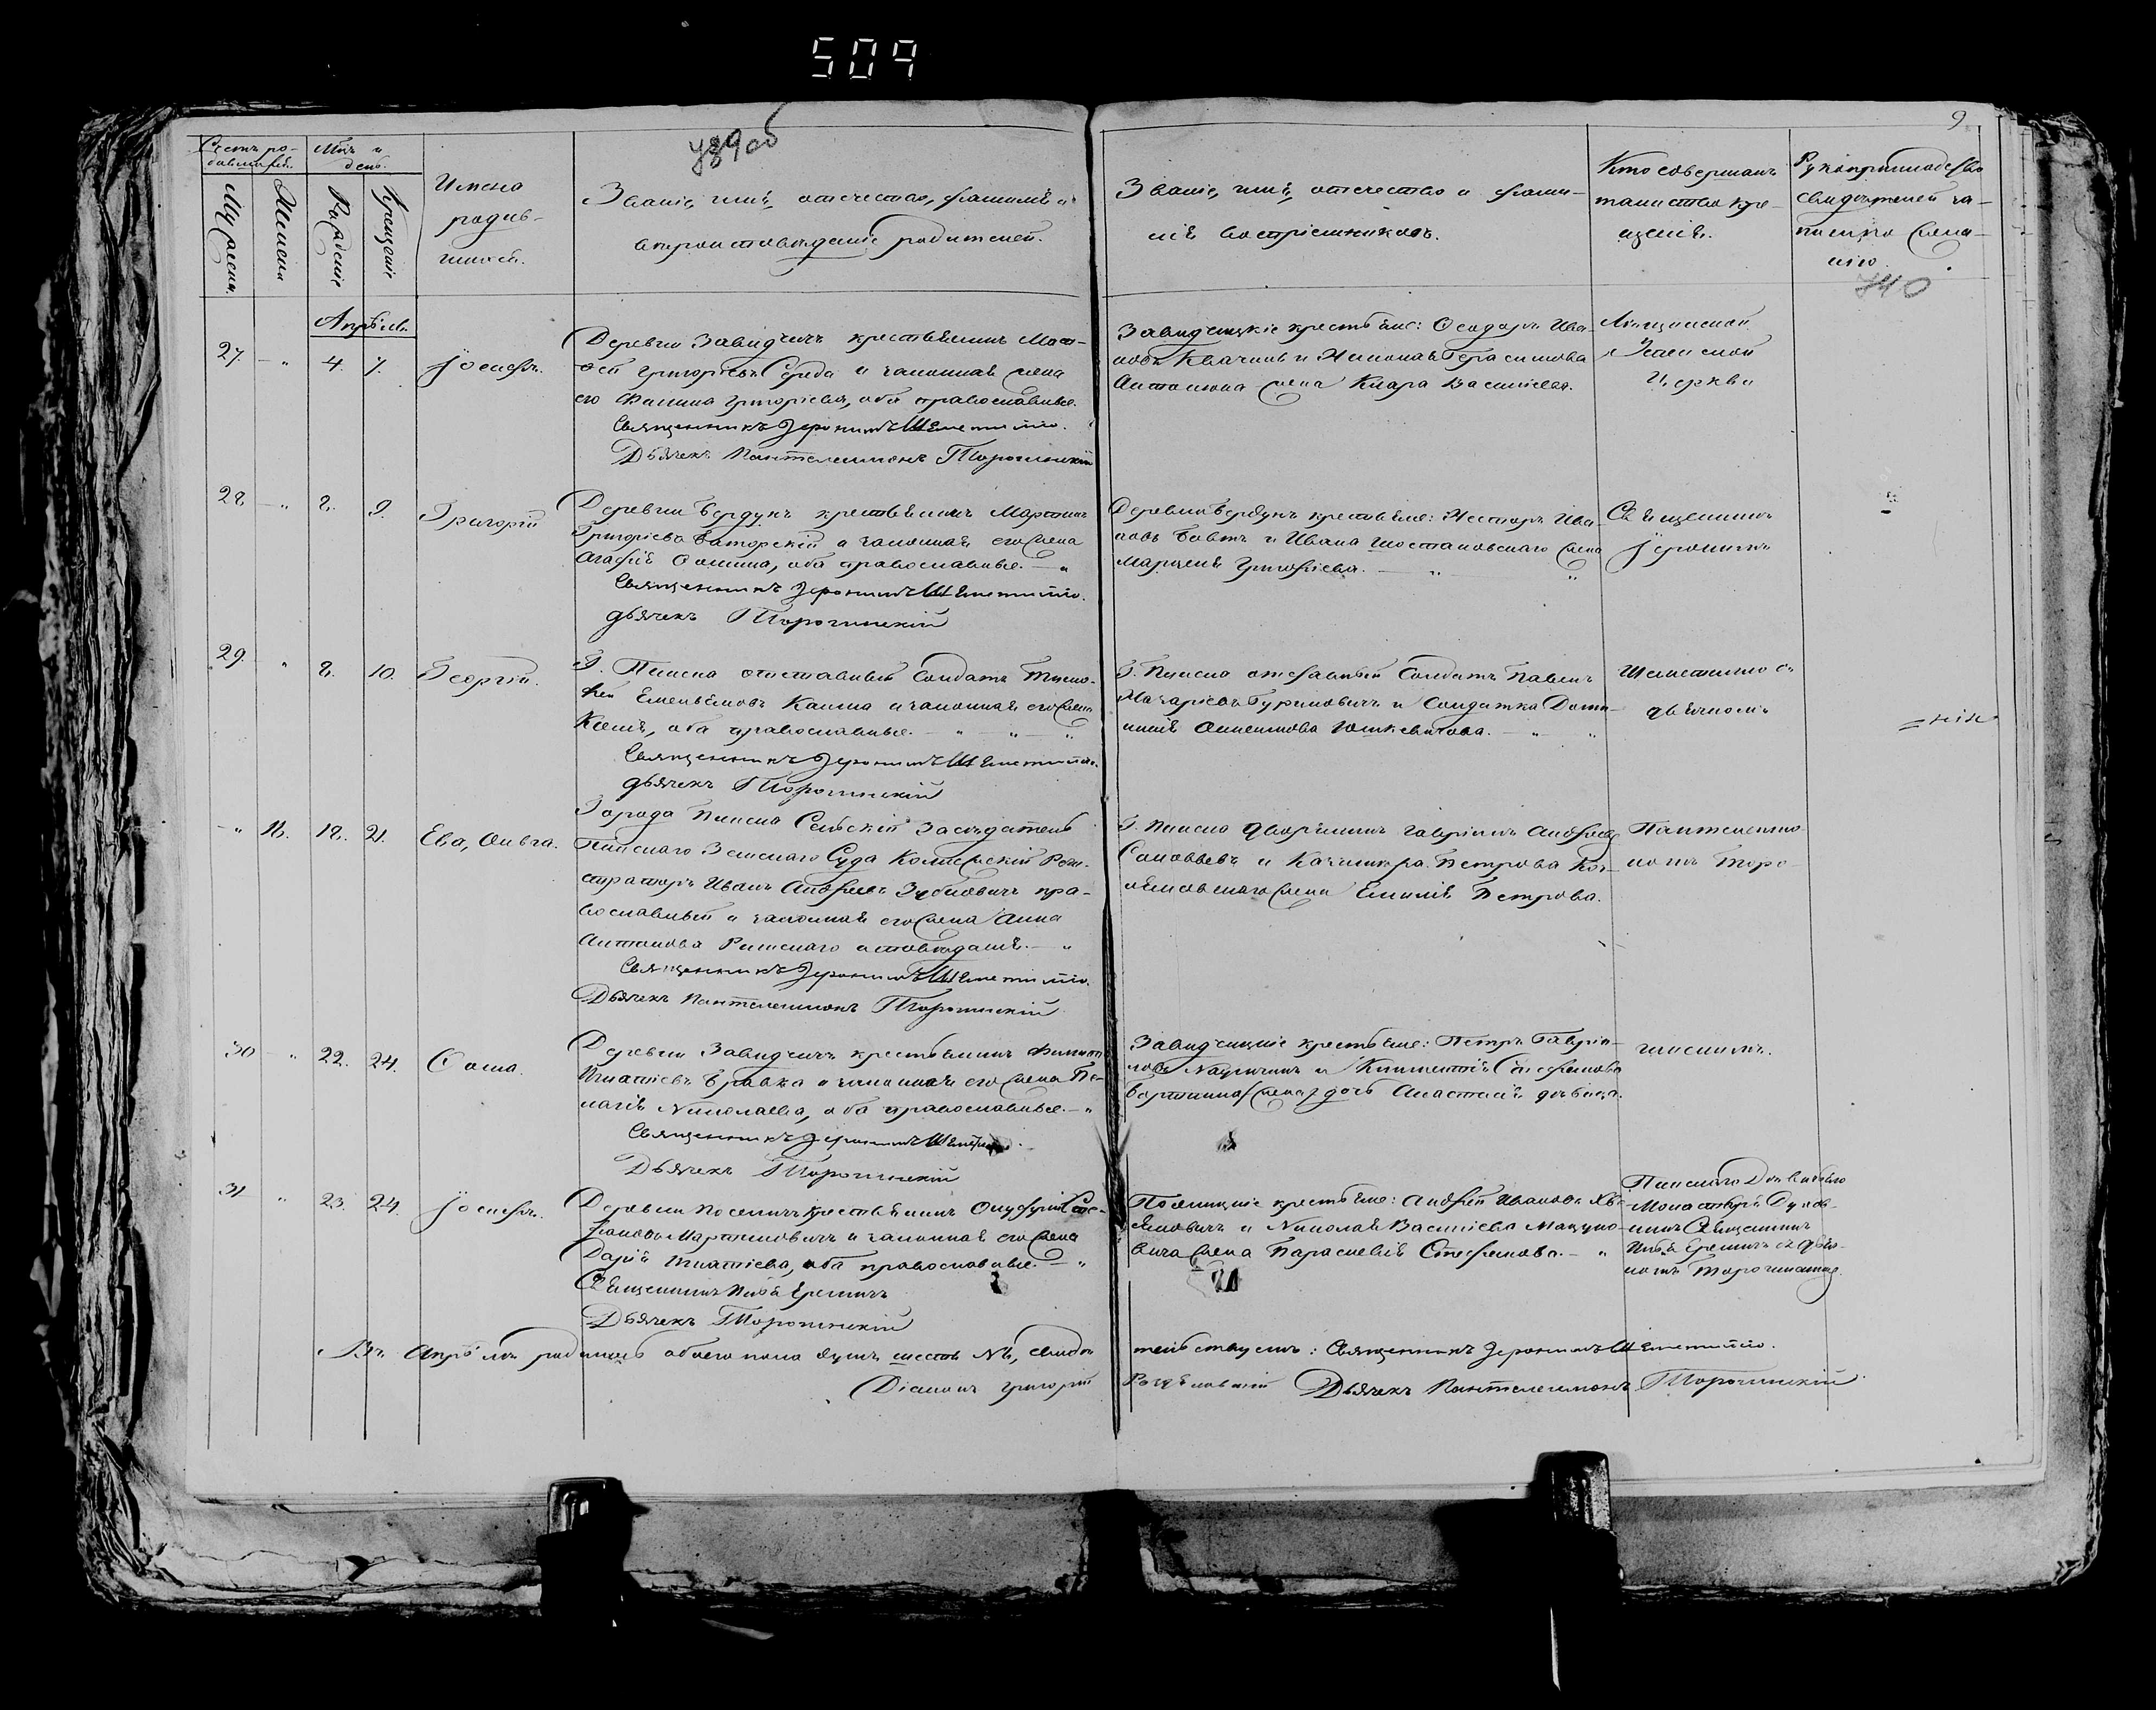 509
у39об
9.
Счетъ ро-
дившихся.
Мѣс. и
день.
Мужеска.
Женска
Рожденіе
Крещеніе
Имена
родив-
шихся.
Званіе, имя, отечество, фамилія и
вѣроисповѣданіе родителей.
Званіе, имя, отечество и фами-
лія воспріемниковъ.
Кто совершалъ
таинство кре-
щенія.
Рукоприкладство
свидѣтелей за-
писки по жела-
нію.
740
Апрѣль.
27. " 4. 7. Іосифъ.
Деревни Завидчичъ крестьянинъ
Григорьевъ Середа и законная жена
его Григорьева, оба православные.
Священникъ Іеронимъ Шеметилло.
Дьячекъ Пантелеимонъ Торочинскій
Завидчицкіе крестьяне: Ѳеодоръ Ива-
новъ и Герасимова
Антонюка жена Клара Васильева.
Успенской
Церкви
28. " 8. 9. Григорій
Деревни Вердунъ крестьянинъ Мартинъ
Григорьевъ Баторскій и законная его жена
Агафія Ѳомина, оба православные. "
Священникъ Іеронимъ Шеметилло.
Дьячекъ Торочинскій
Деревни Вердунъ крестьяне: Несторъ Ива-
новъ и Ивана Шостаповскаго жена
Григорьева. " "
Священникъ
Іеронимъ
29. " 8. 10. Георгій.
Г. Пинска отставный Солдатъ Тимо-
фей Емельяновъ и законная его жена
Ксенія, оба православные. " " "
Священникъ Іеронимъ Шеметилло.
Дьячекъ Торочинскій
Г. Пинска отставный Солдатъ Павелъ
Макаріевъ Гуриновичъ и Солдатка Доми-
никія Юшкевичова. " "
Шеметилло съ
дьячкомъ
" 16. 18. 21. Ева, Ольга.
Города Пинска Сельскій Засѣдатель
Пинскаго Земскаго Суда Коллежскій Реги-
страторъ Иванъ Андреевъ Зубковичъ пра-
вославный и законная его жена Анна
Антонова Римскаго исповѣданія. "
Священникъ Іеронимъ Шеметилло.
Дьячекъ Пантелеимонъ Торочинскій
Г. Пинска дворянинъ Гавріилъ Андреевъ
Соловьевъ и Казимира Петрова
жена Емилія Петрова.
Пантелеимо-
номъ Торо-
30 " 22. 24. Ѳома.
Деревни Завидчичъ крестьянинъ Филиппъ
Игнатіевъ и законная его жена Пе-
лагія Николаева, оба православные. "
Священникъ Іеронимъ
Дьячекъ Торочинскій
Завидчицкіе крестьяне: Петръ Гаврі-
ловъ и Стефанова
дочь Анастасія дѣвица.
чинскимъ.
31 " 23. 24. Іосифъ.
Деревни Посеничъ крестьянинъ Онуфрій Сте-
фановъ Мартиновичъ и законная его жена
Дарія Игнатіева, оба православные. "
Священникъ Илья Еремичъ
Дьячекъ Торочинскій
Посеницкіе крестьяне: Андрей Ивановъ
и Николая Васильева Мацуко-
вича жена Параскевія Стефанова. "
Пинскаго
Монастыря Духов-
никъ Священникъ
Илья Еремичъ съ дьяч-
комъ Торочинскимъ.
Въ Апрѣлѣ родилось обоего пола душъ шесть №6, свидѣ-
тельствуемъ: Священникъ Іеронимъ Шеметилло.
Діаконъ Григорій
Дьячекъ Пантелеимонъ Торочинскій.